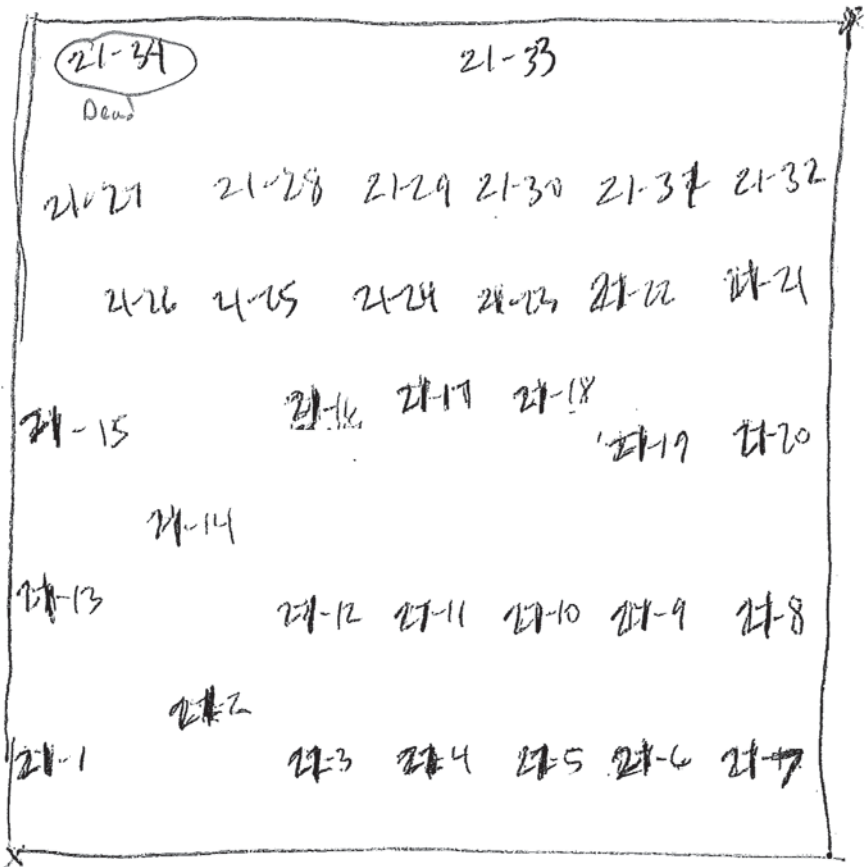 21-34 21-33
Dead
21-27 21-28 21-29 21-30 21-31 21-32
21-26 21-25 21-24 21-23 21-22 21-21
21-15 21-16 21-17 21-18 21-19 21-20
21-14
21-13 21-12 21-11 21-10 21-9 21-8
21-2
21-1 21-3 21-4 21-5 21-6 21-7